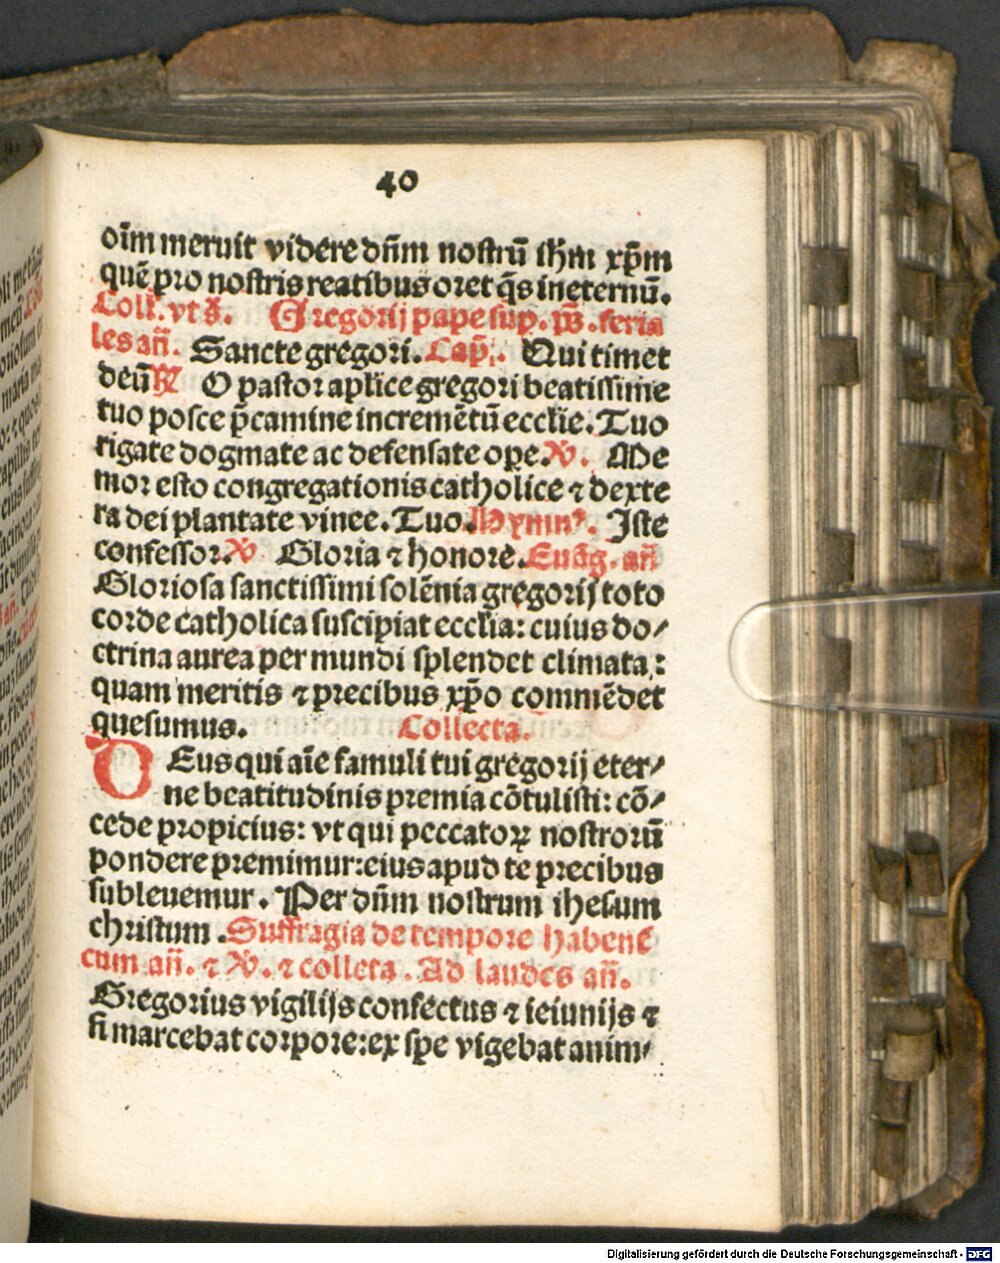 40
oīm meruit videre dn̄m nostrū ihm xp̄m
quē pro nostris reatibus oret q̄s in eternū.
Coll. vt s̄. Gregorij pape sup. ps̄. feria
les an̄. Sancte gregori. Cap̄. Qui timet
deū ℟ O pastor aplice gregori beatissime
tuo posce p̄camine incremētū ecclie. Tuo
rigate dogmate ac defensate ope. ℣. Me
mor esto congregationis catholice ⁊ dexte
ra dei plantate vinee. Tuo. Hymnꝰ. Iste
confessor. ℣ Gloria ⁊ honore. Euāg. an̄
Gloriosa sanctissimi solēnia gregorij toto
corde catholica suscipiat ecclia: cuius do/
ctrina aurea per mundi splendet climata:
quam meritis ⁊ precibus xp̄o commēdet
quesumus. Collecta.
DEus qui aīe famuli tui gregorij eter/
ne beatitudinis premia cōtulisti: cō/
cede propicius: vt qui peccatoꝝ nostrorū
pondere premimur: eius apud te precibus
subleuemur. Per dn̄m nostrum ihesum
christum. Suffragia de tempore habent̄
cum an̄. ⁊ ℣. ⁊ collecta. Ad laudes an̄.
Gregorius vigilijs confectus ⁊ ieiunijs ⁊
si marcebat corpore: ex spe vigebat anim/
Digitalisierung gefördert durch die Deutsche Forschungsgemeinschaft - DFG